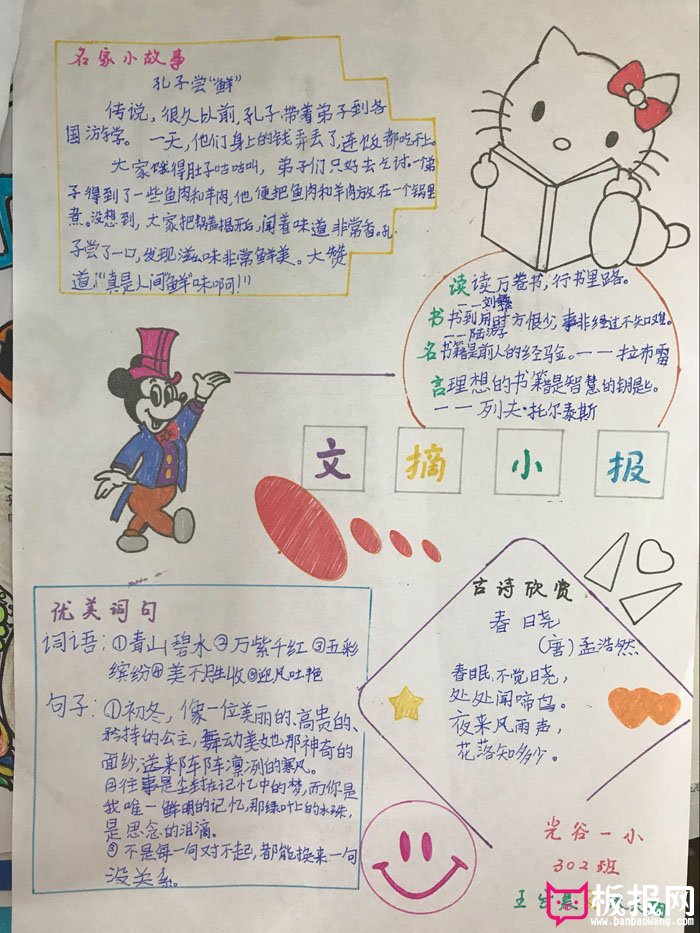 名家小故事
孔子尝“鲜”
传说，很久以前，孔子带着弟子到各
国游学。一天，他们身上的钱弄丢了，连饭都吃不上。
大家饿得肚子咕咕叫，弟子们只好去乞讨。一个弟
子得到了一些鱼肉和羊肉，他便把鱼肉和羊肉放在一个锅里
煮。没想到，大家把锅盖揭开后，闻着味道非常香。孔
子尝了一口，发现滋味非常鲜美。大赞
道：“真是人间“鲜”味啊！！！
读读万卷书，行书里路。
——刘彝
书书到用时方恨少，事非经过不知难。
——陆游
名书籍是前人的经验。——拉布雷
言理想的书籍是智慧的钥匙。
——列夫·托尔泰斯
文摘小报
优美词句
词语：①青山碧水②万紫千红③五彩
缤纷④美不胜收⑤迎风吐艳
句子：①初冬，像一位美丽的、高贵的、
矜持的公主，舞动着她那神奇的
面纱，送来阵阵凛冽的寒风。
②往事是尘封在记忆中的梦，而你是
我唯一鲜明的记忆，那绿叶上的水珠，
是思念的泪滴。
③不是每一句对不起，都能换来一句
没关系。
古诗欣赏
春日晓
（唐）孟浩然
春眠不觉日晓，
处处闻啼鸟。
夜来风雨声，
花落知多少。
光谷一小
302班
王
板报网
www.banbaowang.com